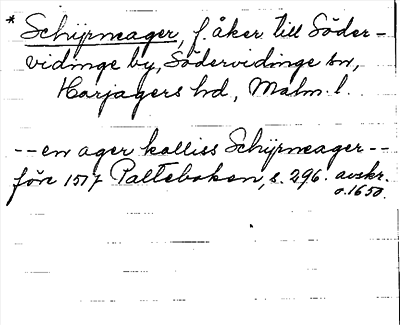 * Schijrneager, f. åker till Söder-
vidinge by, Södervidinge sn,
Harjagers hd, Malm. l.
--en ager kalliss Schijrneager--
före 1517 Palteboken, s. 296. avskr.
o.1650.